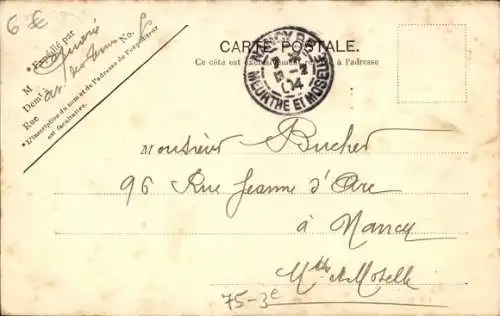 6 €
*Expédié par
M
Demt
Rue No.
*L'inscription du nom et de l'adresse de l'expéditeur
est facultative.
CARTE POSTALE.
Ce côté est exclusivement à l'adresse
NANCY
04
MEURTHE ET MOSELLE
Monsieur Bucher
96 Rue Jeanne d'Arc
à Nancy
Mthe & Moselle
75-3e